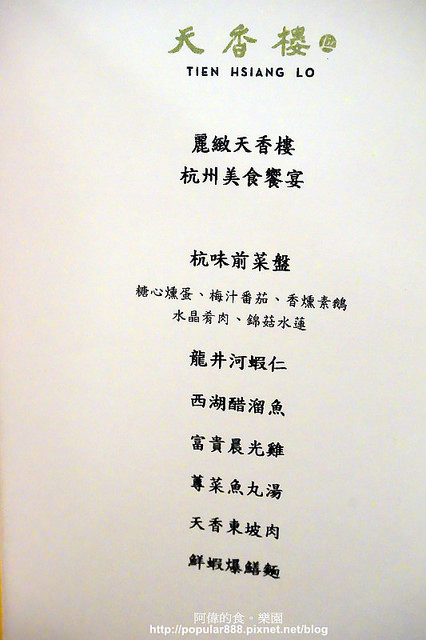 天香樓
TIEN HSIANG LO
麗緻天香樓
杭州美食饗宴
杭味前菜盤
糖心燻蛋、梅汁番茄、香燻素鵝
水晶肴肉、錦菇水蓮
龍井河蝦仁
西湖醋溜魚
富貴晨光雞
蓴菜魚丸湯
天香東坡肉
鮮蝦爆鱔麵
阿偉的食。樂園
http://popular888.pixnet.net/blog